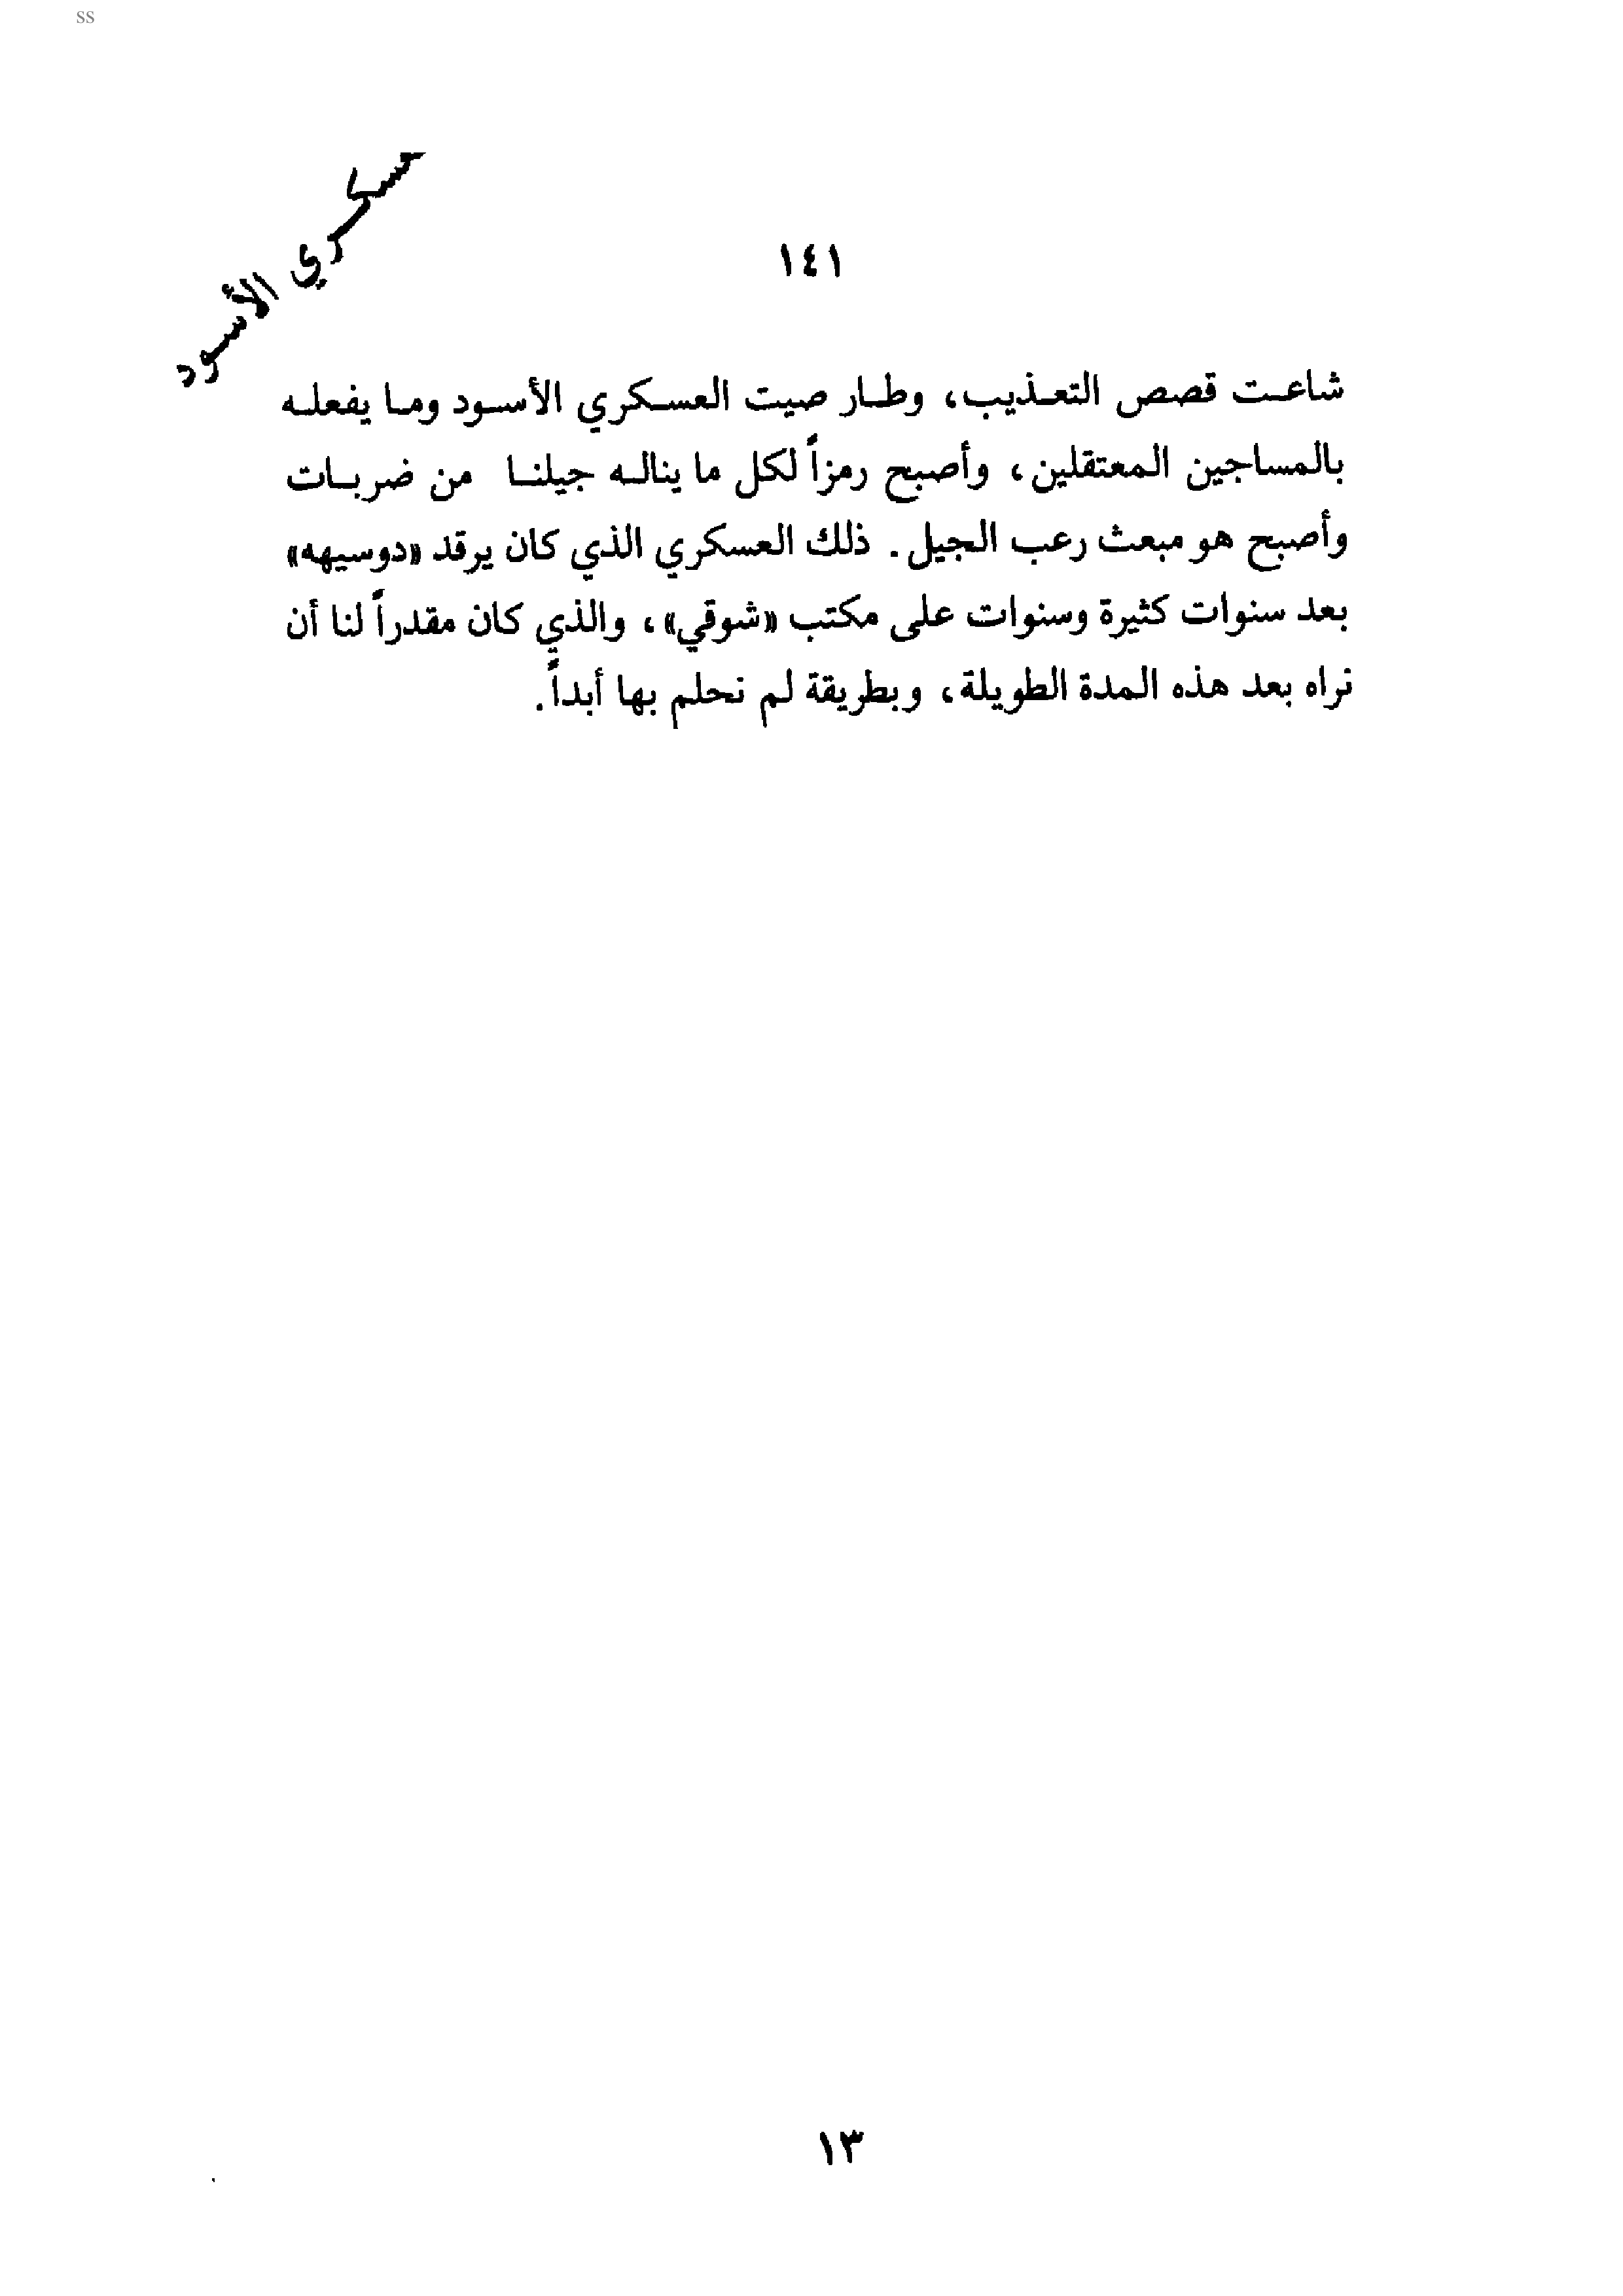 ss
سكري الأسود
١٤١
شاعت قصص التعذيب، وطار صيت العسكري الأسود وما يفعله
بالمساجين المعتقلين، وأصبح رمزاً لكل ما يناله جيلنا من ضربات
وأصبح هو مبعث رعب الجيل. ذلك العسكري الذي كان يرقد «دوسيهه»
بعد سنوات كثيرة وسنوات على مكتب «شوقي»، والذي كان مقدراً لنا أن
نراه بعد هذه المدة الطويلة، وبطريقة لم نحلم بها أبداً.
١٣